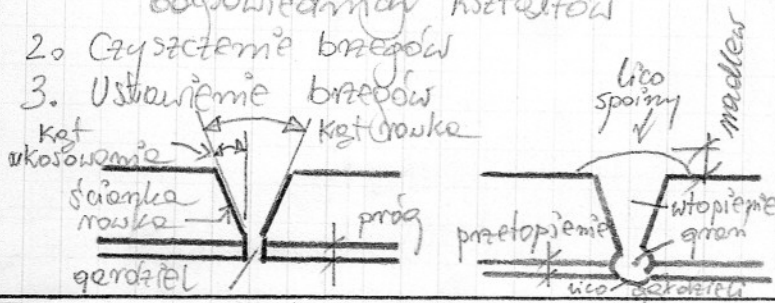 odpowiednich kształtów
2. Czyszczenie brzegów
3. Ustawienie brzegów
kąt ukosowania
kąt rowka
ścianka rowka
próg
gardziel
lico spoiny
nadlew
wtopienie
przetopienie
grań
lico gardzieli